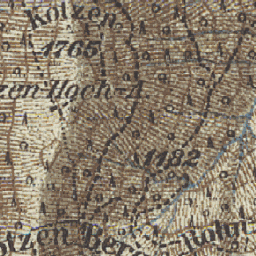 Kotzen
1765
zen Hoch-A
1182
otzen Ber